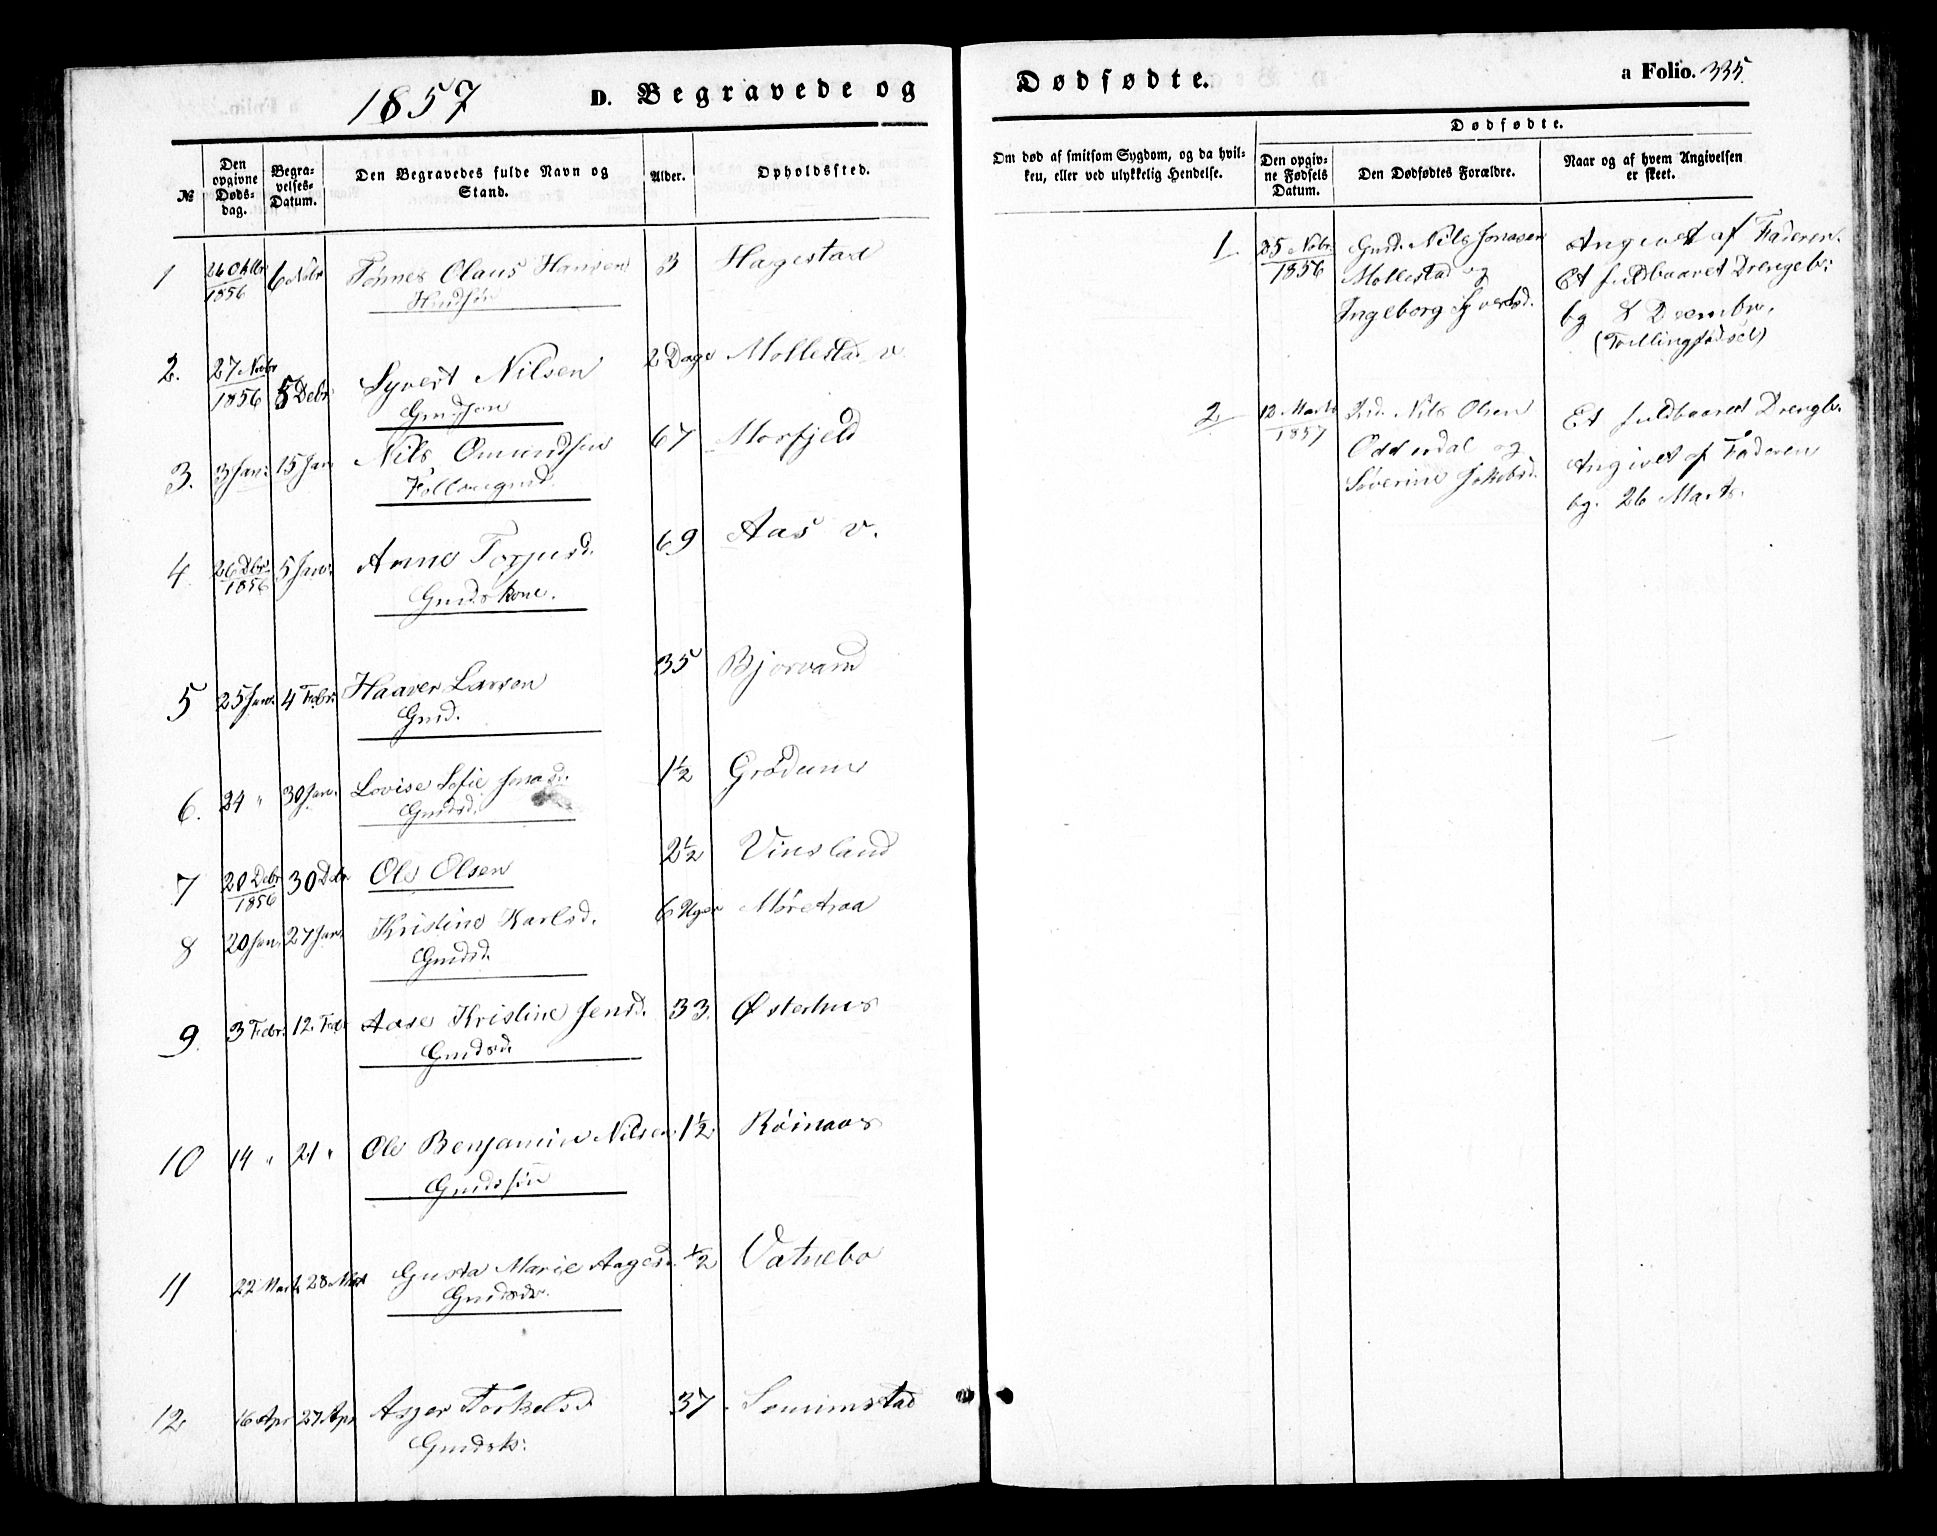 1857 D. Begravede og Dødsødte.
a Folio. 335.
№
Den opgivne Dødsdag.
Begravelses-Datum.
Den Begravedes fulde Navn og Stand.
Alder.
Opholdssted.
Om død af smitsom Sygdom, og da hvilken, eller ved ulykkelig Hendelse.
Dødfødte.
Den opgivne Fødsels Datum.
Den Dødfødtes Forældre.
Naar og af hvem Angivelsen er skeet.
1 26 Oktbr 1856 6 Nobr Tønnes Olaus Hansen 3 Hagestad
2. 27 Nobr 1856 5 Debr Syvert Nilsen 2 Dage Mollestad v.
Gmdssøn
3. 3 Jan: 15 Jan Nils Omundsen 67 Mosfjeld
4. 26 Dbr. 1856 5 Jan: Anne Torjusd. 69 Aas v.
Gmdskone.
5 25 Jan. 4 Febr: Haaver Larson 35 Bjorvand
Gmd.
6. 24 " 30 Jan. Lovise Sofie Jonasd. 1½ Grødum
Gmdsd.
7 20 Debr 1856 30 Debr Ole Olsen 2½ Vinsland
8 20 Jan. 27 Jan. Kristine Karlsd. 6 Uger Møretraa
Gmdsd.
9. 3 Febr: 12 Feb Aase Kristine Jensd. 33. Østerhus
Gmdsd.
10 14 " 21 " Ole Benjamin Nilsen 1½ Røinaas
Gmdssøn
11 22 Marts 28 Mart Gusta Marie Aagesd. ½ Vatnebo
Gmdsdr.
12 16 Apr 27 Apr Asger Torkelsd 37
Gmdsk:
1. 25 Nobr. 1856 Gmd. Nils Jonasen Angivet af Faderen.
Mollestad og Et fuldbaaret Drengeb:
Ingeborg Syvertsd. bg 8 Decembr.
(Tvillingfødsel)
2 12 Marts 1857 Nils Olsen Et fuldbaaret Drengb.
Odderdal og Angivet af Faderen
Severine Jakobsd. bg. 26 Marts.